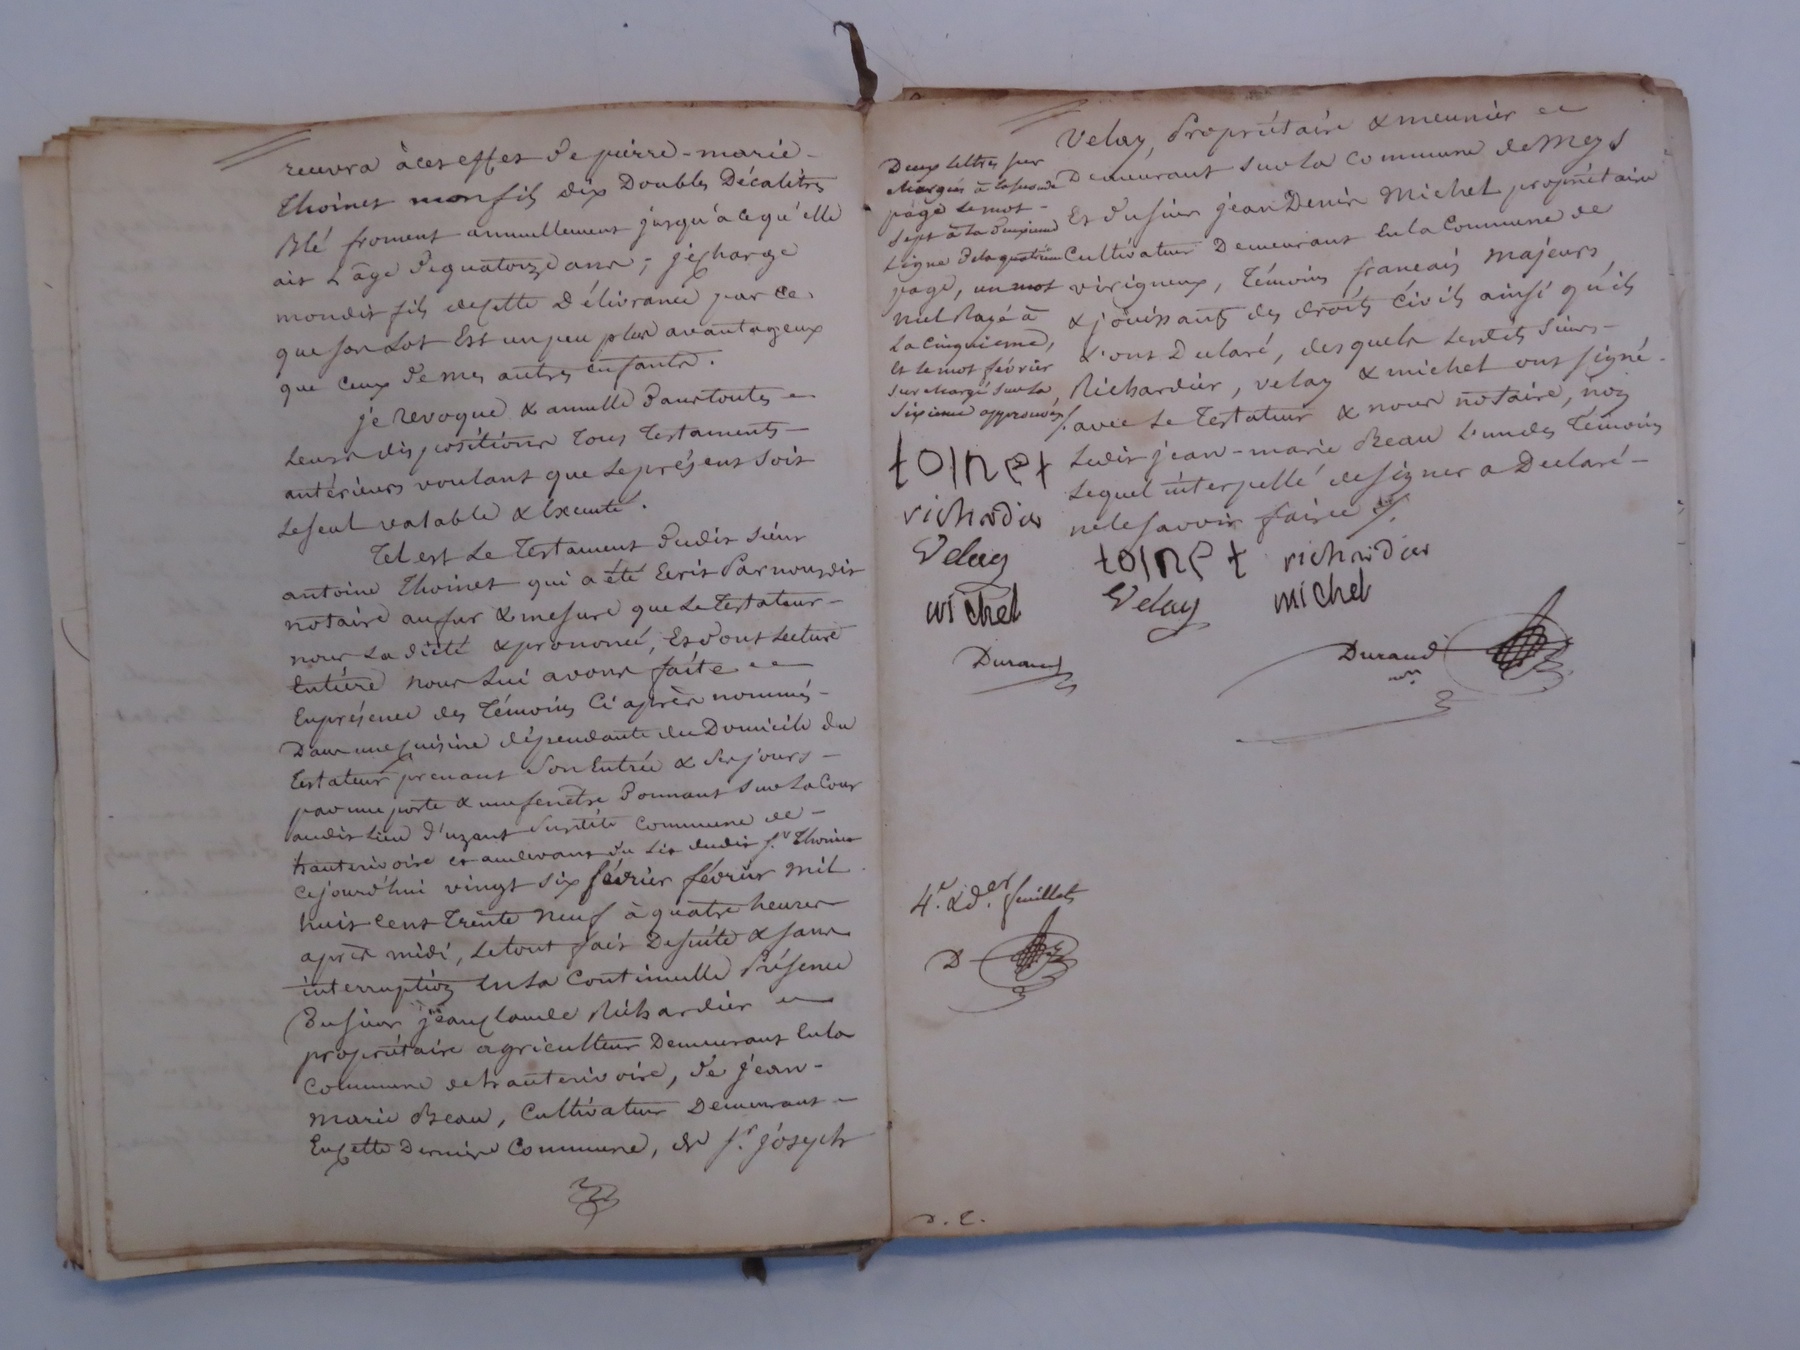 recevra à cet effet de pierre-marie-
Thoinet mon fils dix Doubles Décalitres
Blé froment annuellement jusqu'à ce qu'elle
ait L'âge de quatorze ans; je charge
mondit fils de cette Délivrance par ce
que son Lot Est un peu plus avantageux
que Ceux de mes autres enfants.
je Revoque & annulle Dans toutes
Leurs dispositions Tous Testaments
antérieurs voulant que Le présent Soit
Le seul valable & Exécuté.
Tel est Le Testament Dudit Sieur
antoine Thoinet qui a été Ecrit Par nous dit
notaire au fur & mesure que Le Testateur-
nous La dicté & prononcé, Et dont Lecture
Entière nous Lui avons faite
En présence des Témoins Ci après nommés-
Dans une Cuisine dépendante du Domicile du
Testateur prenant Son Entrée & Ses jours-
par une porte & une fenêtre Donnant Sur La Cour
audit Lieu d'uzant Susdite Commune de-
hauterivoire et audevant du Lit dudit Sr. Thoinet
Cejourd'hui vingt six février février mil
huit Cent Trente Neuf à quatre heures
après midi, Le tout fait De suite & sans
interruption En La Continuelle Présence
Du Sieur jean Claude Richardier
propriétaire agriculteur Demeurant En La
Commune de hauterivoire, de jean-
Marie Beau, Cultivateur Demeurant
En cette Dernière Commune, de Sr. joseph
Velay, Propriétaire & meunier
Demeurant Sur La Commune de Meys
Et du Sieur jean Denis Michel propriétaire
Cultivateur Demeurant En La Commune de
virigneux, Témoins français Majeurs,
& jouissants des droits Civils ainsi qu'ils
L'ont Déclaré, desquels Lesdits Sieurs-
Richardier, velay & michel ont signé-
avec Le Testateur & nous notaire, non
Ledit jean-marie Beau L'un des Témoins
Lequel interpellé de signer a Déclaré-
ne le savoir faire
Deux Lettres sur
chargées à la seconde
page Le mot-
sept à La deuxième
Ligne de la quatrième
page, un mot
nul Rayé à
La Cinquième,
Et Le mot février
surchargé sur La
Sixième approuvés
toinet
richardier
Velay
michel
Durand
toinet richardier
Velay michel
Durand
nre
4e. & der. feuillet
D